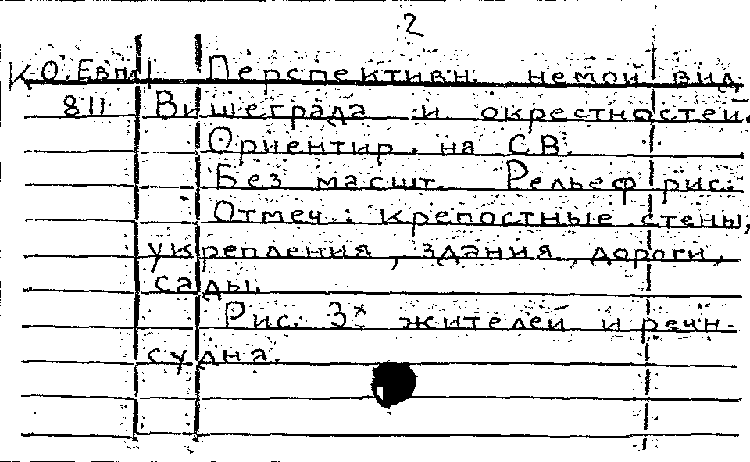 2
К О. Евп. Перспективн. немой вид
811 Вишеграда и окрестностей.
Ориентир. на СВ.
Без масшт. Рельеф рис.
Отмеч.: крепостные стены,
укрепления, здания, дороги,
сады.
Рис. 3х жителей и речн.
судна.